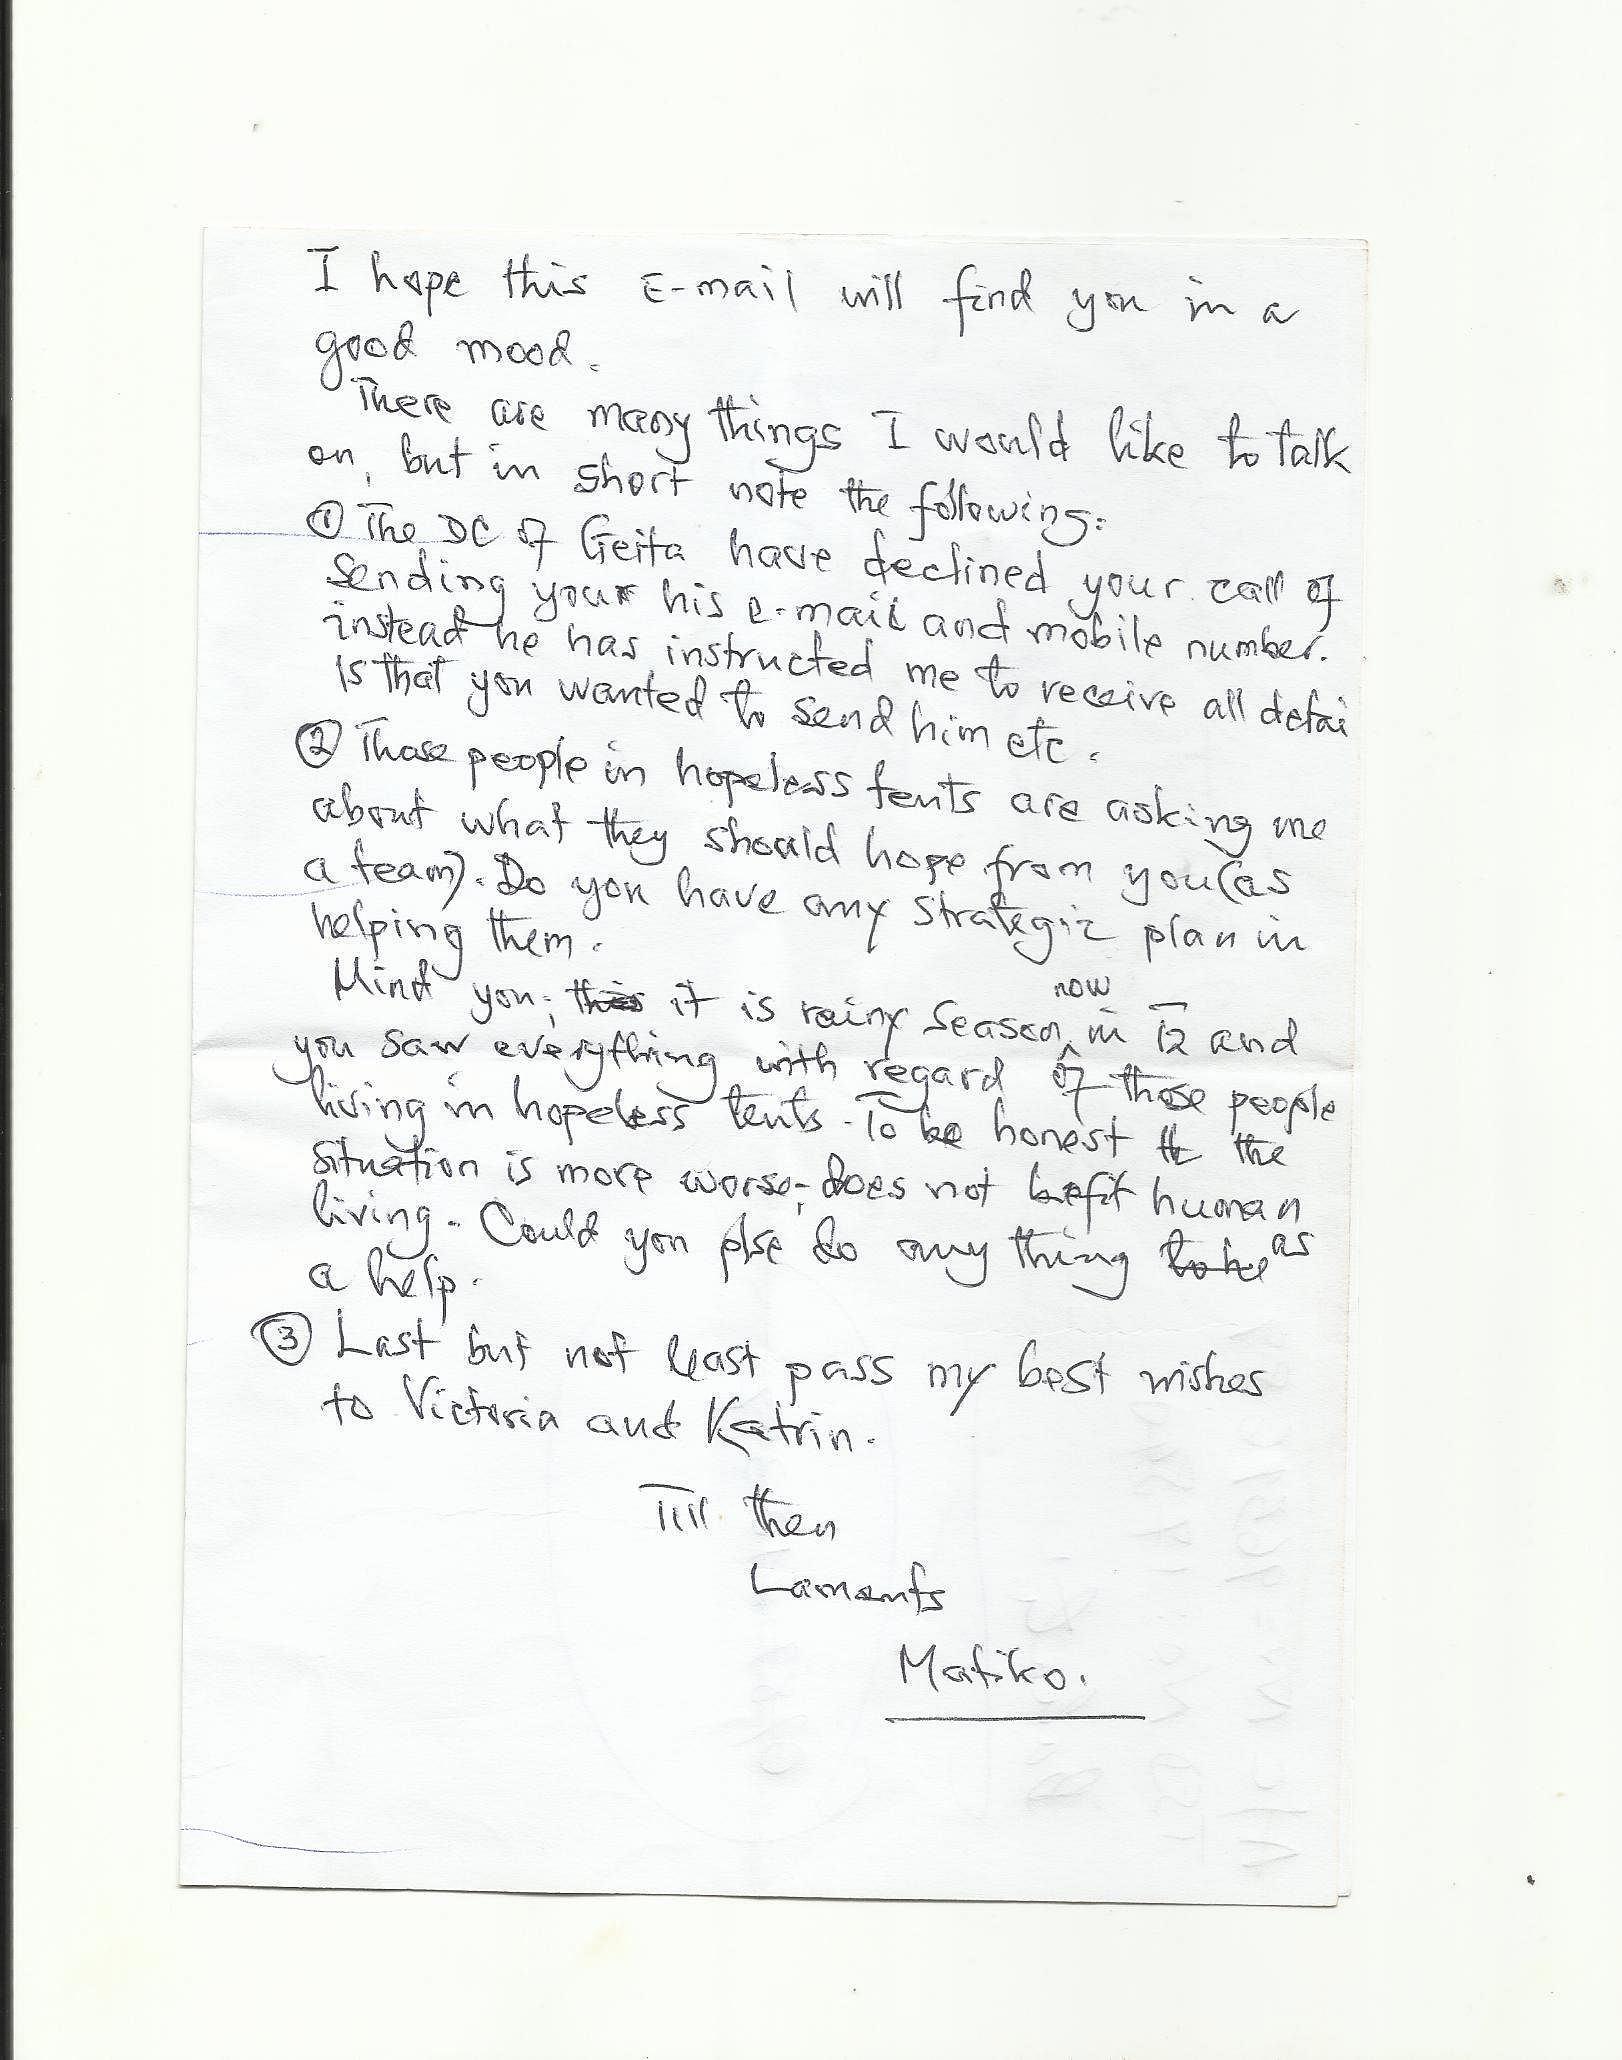 I hope this E-mail will find you in a
good mood.
There are many things I would like to talk
on, but in short note the following:
① The DC of Geita have declined your call of
sending your his e-mail and mobile number.
instead he has instructed me to receive all detai
ls that you wanted to send him etc.
② Those people in hopeless tents are asking me
about what they should hope from you (as
a team). Do you have any strategic plan in
helping them.
Mind you, this it is rainy season now in Tz and
you saw everything with regard of those people
living in hopeless tents. To be honest th the
situation is more worse, does not befit human
living. Could you plse do any thing to be as
a help.
③ Last but not least pass my best wishes
to Victoria and Katrin.
Till then
Laments
Matiko.